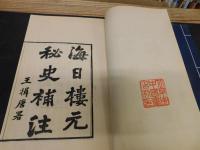 海日樓元
秘史補注
王揖唐署